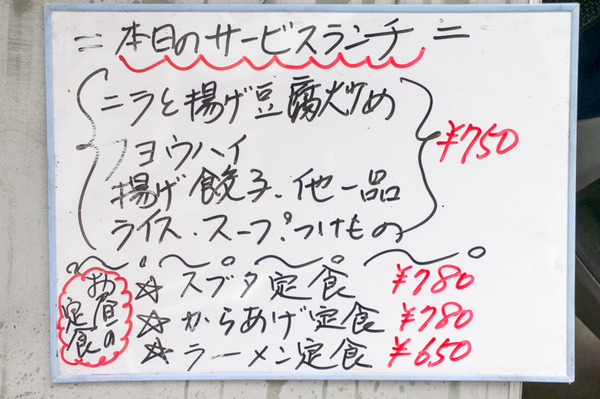 = 本日のサービスランチ =
ニラと揚げ豆腐炒め
フヨウハイ
揚げ餃子、他一品
ライス・スープ・つけもの
¥750
お昼の定食
☆ スブタ定食 ¥780
☆ からあげ定食 ¥780
☆ ラーメン定食 ¥650